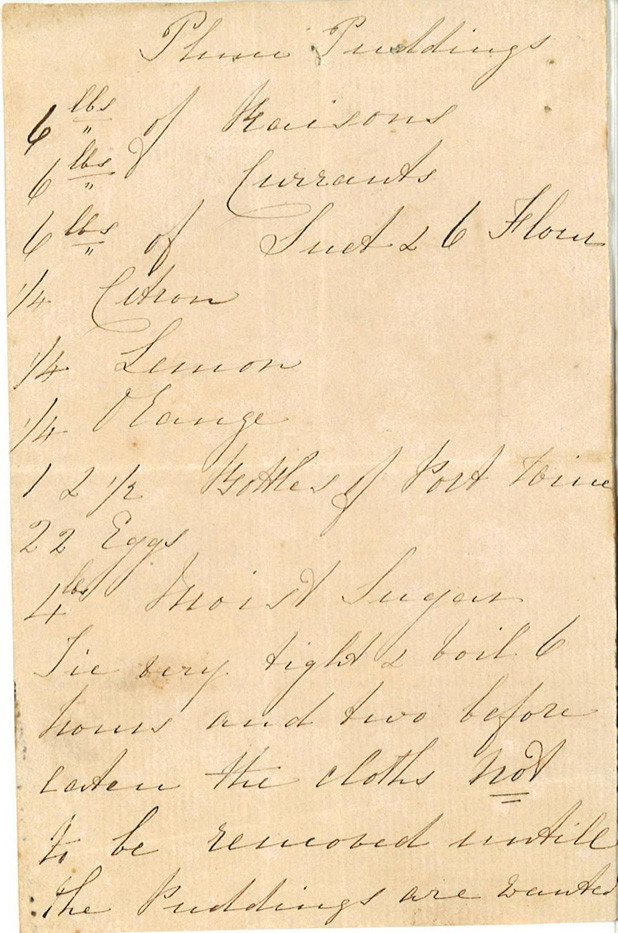 Plum Puddings
6 lbs of Raisons
6 lbs " Currants
6 lbs of Suet & 6 Flour
1/4 Citron
1/4 Lemon
1/4 Orange
1 & 1/2 Bottles of Port Wine
22 Eggs
4 lbs Moist Sugar
Tie very tight & boil 6
hours and two before
eaten the cloths not
to be removed untill
the Puddings are wanted